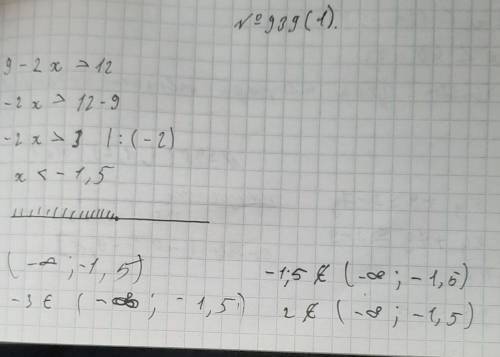 № 939(1).
9 - 2x > 12
-2x > 12-9
-2x > 3 | : (-2)
x < - 1,5
(-∞ ; -1, 5)
-1,5 ∉ (-∞ ; - 1,5)
-3 ∈ (-∞ ; - 1,5)
2 ∉ (-∞ ; - 1,5)